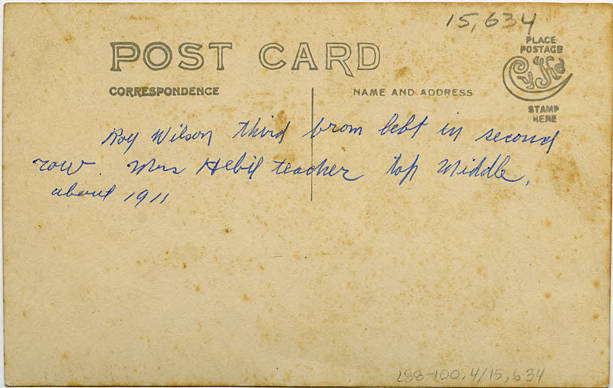 15,634
POST CARD
PLACE
POSTAGE
STAMP
HERE
CORRESPONDENCE
NAME AND ADDRESS
Roy Wilson third from left in second
row. Mrs teacher top Middle,
about 1911
298-100.4/15,634